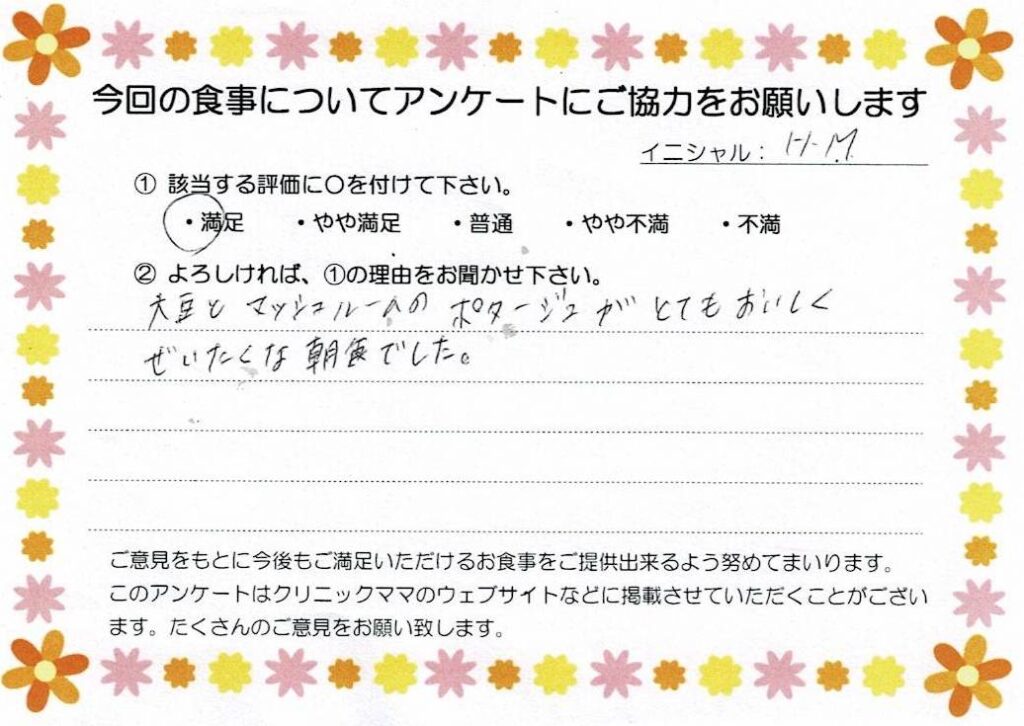 今回の食事についてアンケートにご協力をお願いします
イニシャル： H.M.
① 該当する評価に〇を付けて下さい。
・満足 ・やや満足 ・普通 ・やや不満 ・不満
② よろしければ、①の理由をお聞かせ下さい。
大豆と マッシュルームの ポタージュが とてもおいしく
ぜいたくな 朝食でした。
ご意見をもとに今後もご満足いただけるお食事をご提供出来るよう努めてまいります。
このアンケートはクリニックママのウェブサイトなどに掲載させていただくことがござい
ます。たくさんのご意見をお願い致します。